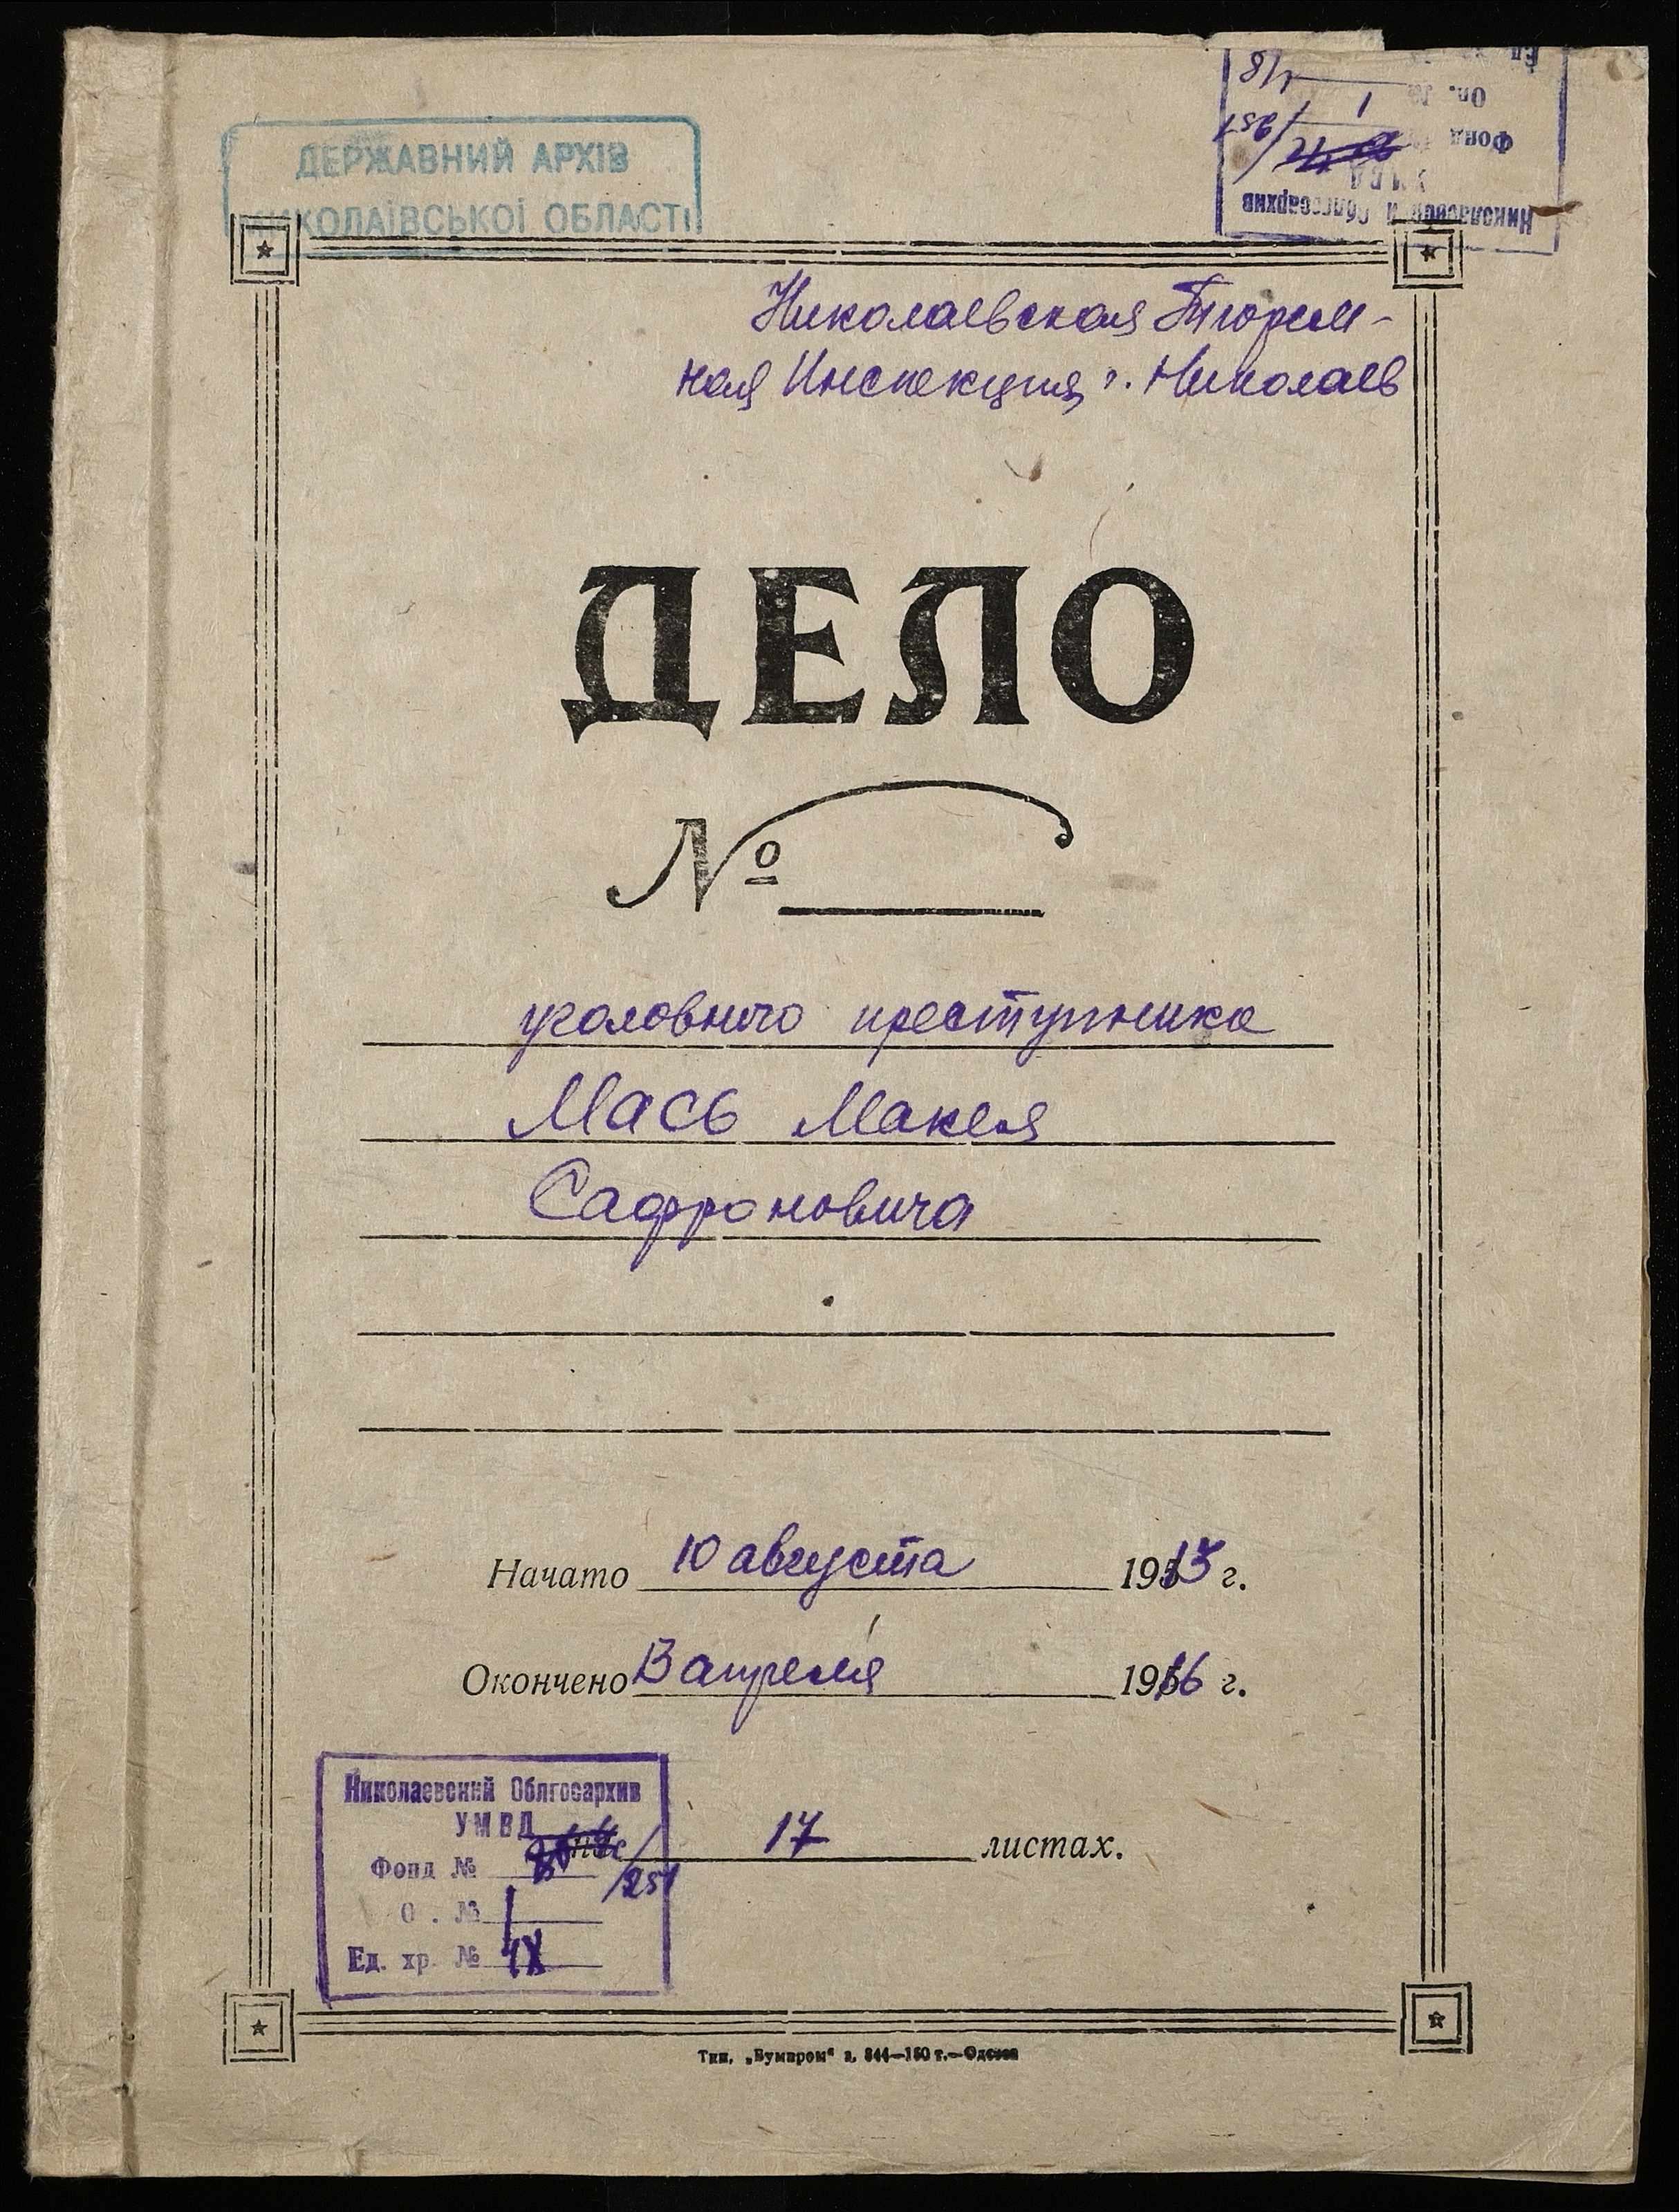 ДЕРЖАВНИЙ АРХІВ
МИКОЛАЇВСЬКОЇ ОБЛАСТІ
Николаевский Облгосархив
УМВД
Фонд № /251
Оп. № 1
Ед
Николаевская Тюрем-
ная Инспекция г. Николаев
ДЕЛО
№
уголовного преступника
Мась Макея
Сафроновича
Начато 10 августа 1915 г.
Окончено 3 апреля 1916 г.
17 листах.
Николаевский Облгосархив
УМВД
Фонд № /251
О . № 1
Ед. хр. №
Тип. „Бумпром“ з. 844—150 т.—Одесса